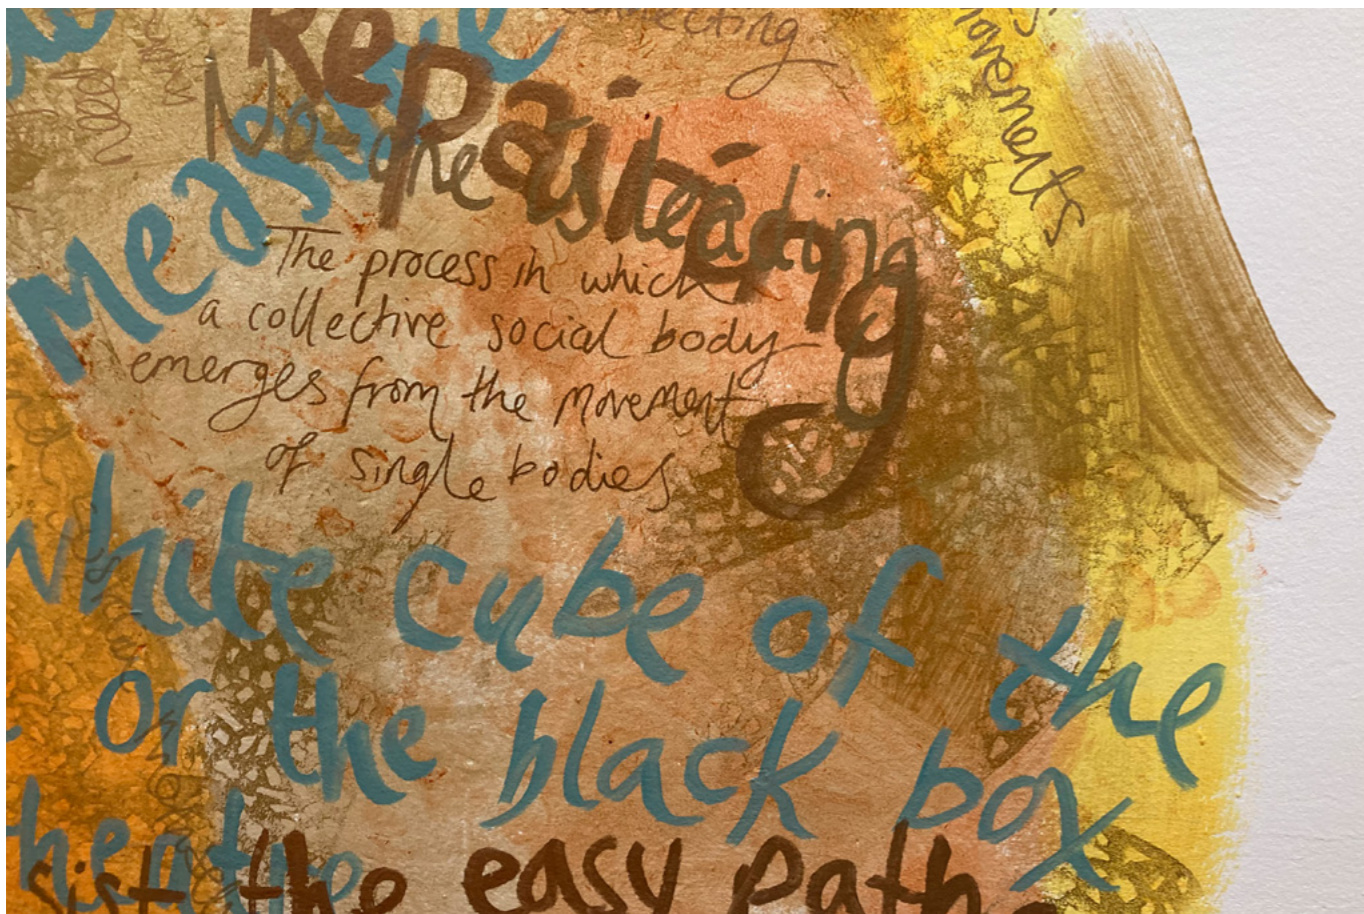 Re
Pairing
movements
Measure
No one is leading
The process in which
a collective social body
emerges from the movement
of single bodies
white cube of the
or the black box
the easy path